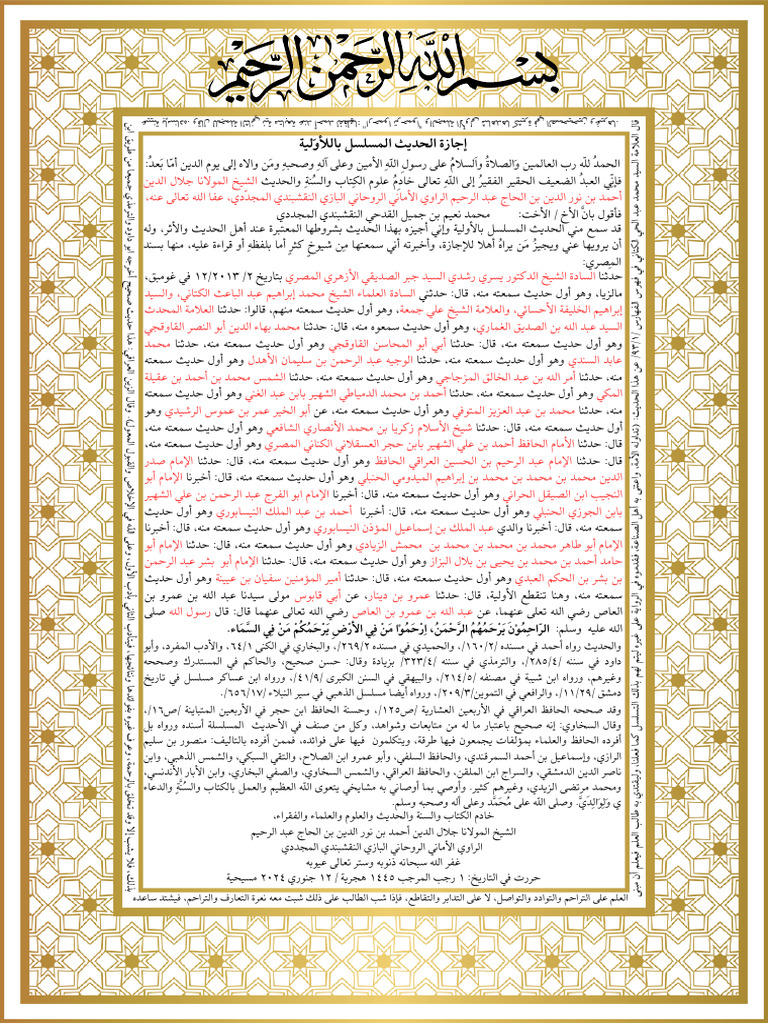 بسم الله الرحمن الرحيم
إجازة الحديث المسلسل باللأوّلية
الحمدُ للّه رب العالمين وَالصلاةُ وَالسلامُ على رسولِ اللّهِ الأمين وعلى آلهِ وصحبهِ ومَن والاه إلى يوم الدين أمّا بَعدُ:
فإنّي العبدُ الضعيف الحقير الفقيرُ إلى اللّهِ تعالى خادِمُ علوم الكِتاب والسُنةِ والحديث الشيخ المولانا جلال الدين
أحمد بن نور الدين بن الحاج عبد الرحيم الراوي الأماني الروحاني البازي النقشبندي المجدّدي، عفا الله تعالى عنه،
فأقول بانَّ الأخ / الأخت: محمد نعيم بن جميل القدحي النقشبندي المجددي
قد سمع مني الحديث المسلسل بالأولية وإني أجيزه بهذا الحديث بشروطها المعتبرة عند أهل الحديث والأثر، وله
أن يرويها عني ويجيزُ مَن يراهُ أهلا للإجازة، وأخبرته أني سمعتها مِن شيوخٍ كثرٍ أما بلفظهِ أو قراءة عليه، منها بسند
المصري:
حدثنا السادة الشيخ الدكتور يسري رشدي السيد جبر الصديقي الأزهري المصري بتاريخ ٢/ ١٢/٢٠١٣ في غومبق،
مالزيا، وهو أول حديث سمعته منه، قال: حدثتي السادة العلماء الشيخ محمد إبراهيم عبد الباعث الكتاني، والسيد
إبراهيم الخليفة الأحسائي، والعلامة الشيخ علي جمعة، وهو أول حديث سمعته منهم، قالوا: حدثنا العلامة المحدث
السيد عبد الله بن الصديق الغماري، وهو أول حديث سمعوه منه، قال: حدثنا محمد بهاء الدين أبو النصر القاوقجي
وهو أول حديث سمعته منه، قال: حدثنا أبي أبو المحاسن القاوقجي وهو أول حديث سمعته منه، حدثنا محمد
عابد السندي وهو أول حديث سمعته منه، حدثنا الوجيه عبد الرحمن بن سليمان الأهدل وهو أول حديث سمعته
منه، حدثنا أمر الله بن عبد الخالق المزجاجي وهو أول حديث سمعته منه، حدثنا الشمس محمد بن أحمد بن عقيلة
المكي وهو أول حديث سمعته منه، حدثنا أحمد بن محمد الدمياطي الشهير بابن عبد الغني وهو أول حديث سمعته
منه، حدثنا محمد بن عبد العزيز المتوفي وهو أول حديث سمعته منه، عن أبو الخير عمر بن عموس الرشيدي وهو
أول حديث سمعته منه، قال: حدثنا شيخ الأسلام زكريا بن محمد الأنصاري الشافعي وهو أول حديث سمعته منه،
قال: حدثنا الأمام الحافظ أحمد بن علي الشهير بابن حجر العسقلاني الكناني المصري وهو أول حديث سمعته منه،
قال: حدثنا الإمام عبد الرحيم بن الحسين العراقي الحافظ وهو أول حديث سمعته منه، قال: حدثنا الإمام صدر
الدين محمد بن محمد بن محمد بن إبراهيم الميدومي الحنبلي وهو أول حديث سمعته منه، قال: أخبرنا الإمام أبو
النجيب ابن الصيقل الحراني وهو أول حديث سمعته منه، قال: أخبرنا الإمام ابو الفرج عبد الرحمن بن علي الشهير
بابن الجوزي الحنبلي وهو أول حديث سمعته منه، قال: أخبرنا أحمد بن عبد الملك النيسابوري وهو أول حديث
سمعته منه، قال: أخبرنا والدي عبد الملك بن إسماعيل المؤذن النيسابوري وهو أول حديث سمعته منه، قال: أخبرنا
الإمام أبو طاهر محمد بن محمد بن محمد بن محمش الزيادي وهو أول حديث سمعته منه، قال: حدثنا الإمام أبو
حامد أحمد بن محمد بن يحيى بن بلال البزاز وهو أول حديث سمعته منه، قال: حدثنا الإمام أبو بشر عبد الرحمن
بن بشر بن الحكم العبدي وهو أول حديث سمعته منه، قال: حدثنا أمير المؤمنين سفيان بن عيينة وهو أول حديث
سمعته منه، وهنا تنقطع الأولية، قال: حدثنا عمرو بن دينار، عن أبي قابوس مولى سيدنا عبد الله بن عمرو بن
العاص رضي الله تعلى عنهما، عن عبد الله بن عمرو بن العاص رضي الله تعالى عنهما قال: قال رسول الله صلى
الله عليه وسلم: الرَّاحِمُونَ يَرْحَمُهُمُ الرَّحْمَنُ، اِرْحَمُوا مَنْ فِي الأَرْضِ يَرْحَمْكُمْ مَنْ فِي السَّمَاءِ.
والحديث رواه أحمد في مسنده /١٦٠/٢، والحميدي في مسنده /٢٦٩/٢، والبخاري في الكنى ٦٤/١، والأدب المفرد، وأبو
داود في سننه /٢٨٥/٤، والترمذي في سننه /٣٢٣/٤ بزيادة وقال: حسن صحيح، والحاكم في المستدرك وصححه
وغيرهم، ورواه ابن شيبة في مصنفه /٢١٤/٥، والبيهقي في السنن الكبرى /٤١/٩، ورواه ابن عساكر مسلسل في تاريخ
دمشق /١١/٢٩، والرافعي في التموين/٢٠٩/٣، ورواه أيضا مسلسل الذهبي في سير النبلاء /٦٥٦/١٧،
وقد صححه الحافظ العراقي في الأربعين العشارية /ص١٢٥، وحسنة الحافظ ابن حجر في الأربعين المتباينة /ص١٦،
وقال السخاوي: إنه صحيح باعتبار ما له من متابعات وشواهد، وكل من صنف في الأحديث المسلسلة أسنده ورواه بل
أفرده الحافظ والعلماء بمؤلفات يجمعون فيها طرقة، ويتكلمون فيها على فوائده، فممن أفرده بالتاليف: منصور بن سليم
الرازي، وإسماعيل بن أحمد السمرقندي، والحافظ السلفي، وأبو عمرو ابن الصلاح، والتقي السبكي، والشمس الذهبي، وابن
ناصر الدين الدمشقي، والسراج ابن الملقن، والحافظ العراقي، والشمس السخاوي، والصفي البخاري، وابن الأبار الأندنسي،
ومحمد مرتضى الزيدي، وغيرهم كثير. وأوصي بما أوصاني به مشايخي بتعوى الله العظيم والعمل بالكتاب والسُنَّةِ والدعاء
ي وَلِوَالِدَيَّ. وصلى الله على مُحَمَّد وعلى آله وصحبه وسلم.
خادم الكتاب والسنة والحديث والعلوم والعلماء والفقراء،
الشيخ المولانا جلال الدين أحمد بن نور الدين بن الحاج عبد الرحيم
الراوي الأماني الروحاني البازي النقشبندي المجددي
غفر الله سبحانه ذنوبه وستر تعالى عيوبه
حررت في التاريخ: ١ رجب المرجب ١٤٤٥ هجرية / ١٢ جنوري ٢٠٢٤ مسيحية
قال العلامة السيد محمد عبد الحي الكتاني في فهرس الفهارس /٩٣/١/ عن هذا الحديث:
العلم على التراحم والتوادد والتواصل، لا على التدابر والتقاطع، فإذا شب الطالب على ذلك شبت معه نعرة التعارف والتراحم، فيشتد ساعده